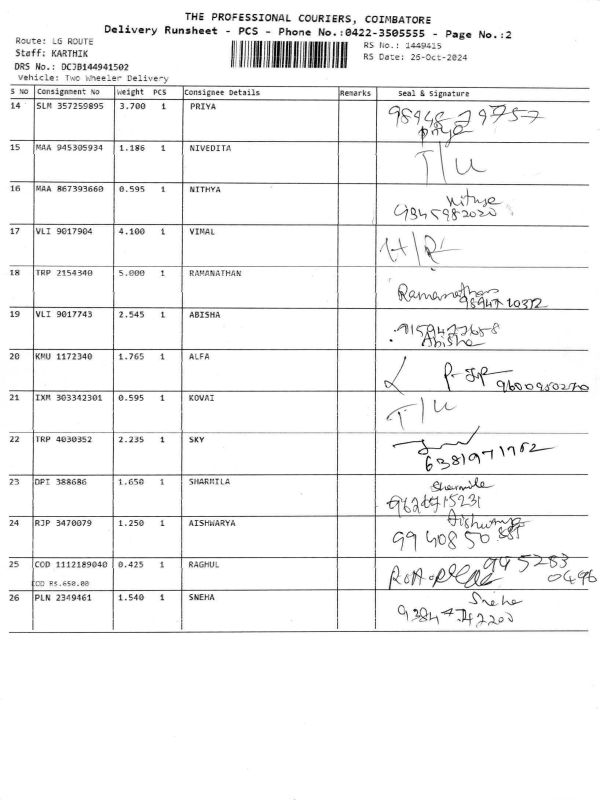 THE PROFESSIONAL COURIERS, COIMBATORE
Delivery Runsheet - PCS - Phone No.:0422-3505555 - Page No.:2
Route: LG ROUTE
RS No.: 1449415
Staff: KARTHIK
RS Date: 26-Oct-2024
DRS No.: DCJB144941502
Vehicle: Two Wheeler Delivery
S No Consignment No Weight PCS Consignee Details Remarks Seal & Signature
14 SLM 357259895 3.700 1 PRIYA
Priya
15 MAA 945305934 1.186 1 NIVEDITA T/U
16 MAA 867393660 0.595 1 NITHYA
9345982020
17 VLI 9017904 4.100 1 VIMAL
18 TRP 2154340 5.000 1 RAMANATHAN Ramanathan
19 VLI 9017743 2.545 1 ABISHA
Abisha
20 KMU 1172340 1.765 1 ALFA 9600950270
21 IXM 303342301 0.595 1 KOVAI T/U
22 TRP 4030352 2.235 1 SKY
6381971762
23 DPI 388686 1.650 1 SHARMILA
24 RJP 3470079 1.250 1 AISHWARYA
99 40850 881
25 COD 1112189040 0.425 1 RAGHUL 945283
COD RS.650.00 0496
26 PLN 2349461 1.540 1 SNEHA Sneha